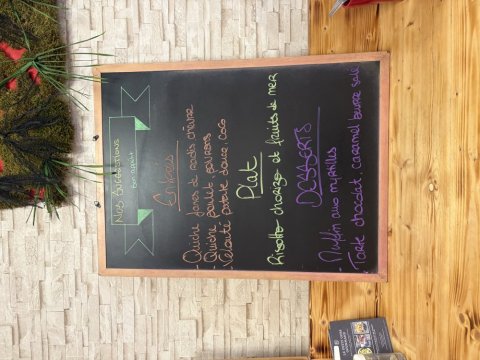 Nos suggestions
Bon appétit
Entrées
- Quiche fanes de radis chèvre
- Quiche poulet poivrons
- Velouté patate douce coco
Plat
Risotto chorizo et fruits de mer
DESSERTS
- Muffin aux myrtilles
- Tarte chocolat, caramel beurre salé